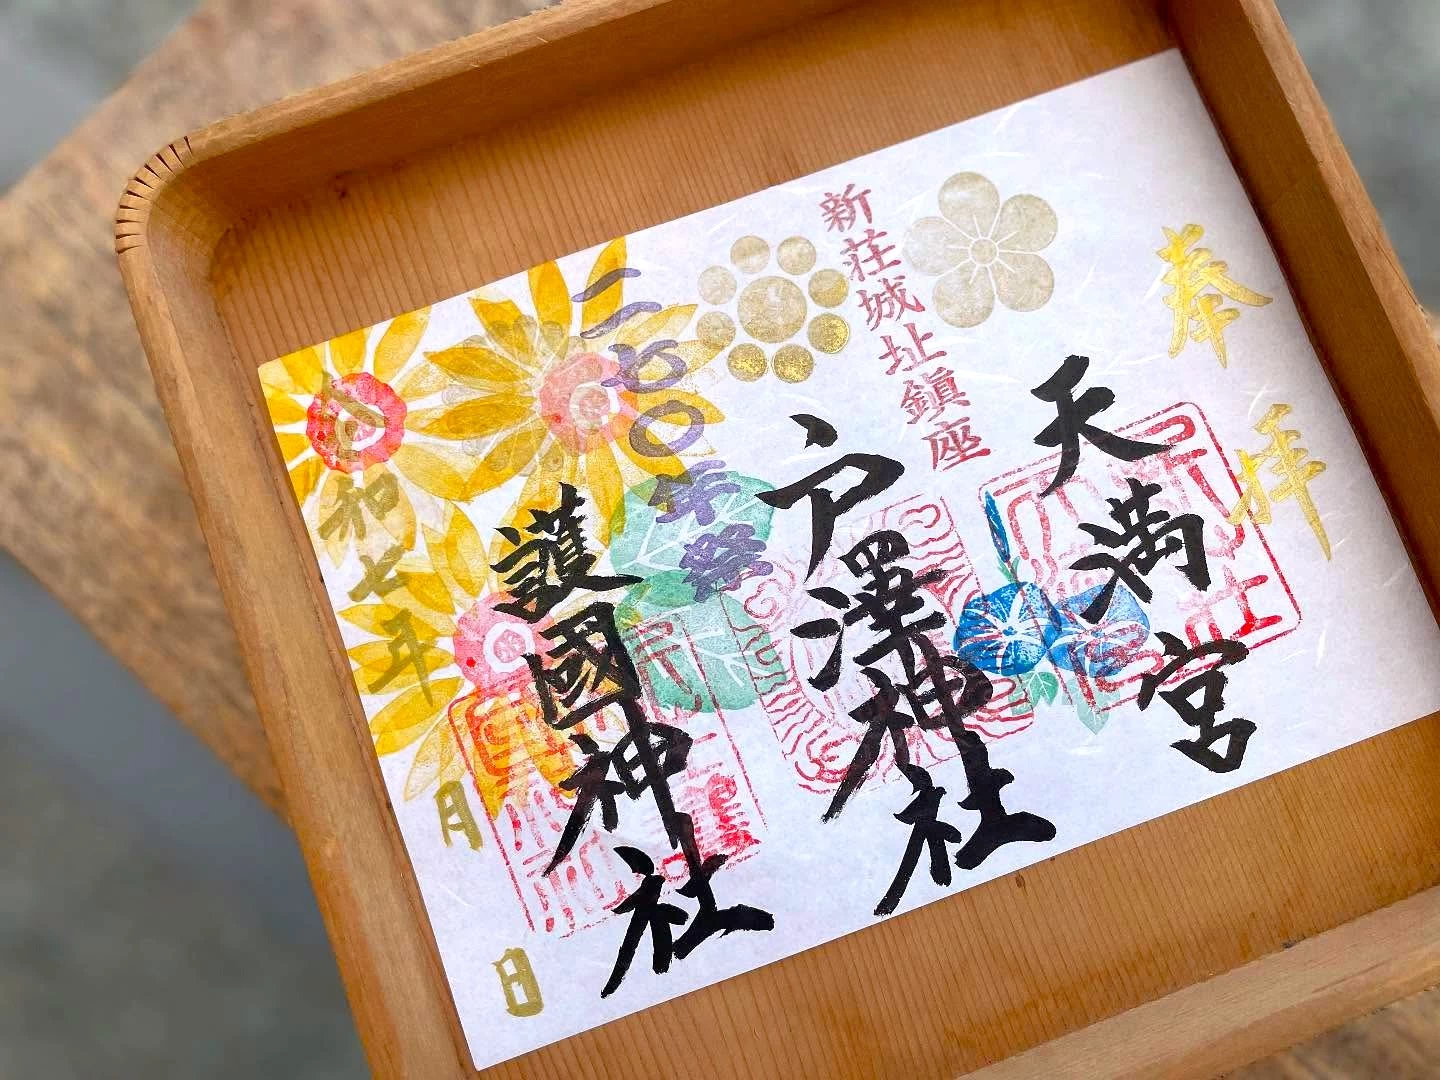 奉拝
天満宮
新荘城址鎮座
戸澤神社
二七〇年祭
護國神社
令和七年
月
日